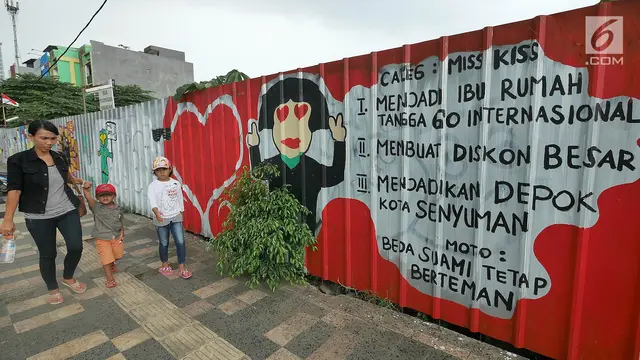 CALEG : MISS KISS
I. MENJADI IBU RUMAH
TANGGA GO INTERNASIONAL
II. MEMBUAT DISKON BESAR
III. MENJADIKAN DEPOK
KOTA SENYUMAN
MOTO :
BEDA SUAMI TETAP
BERTEMAN
6
.COM